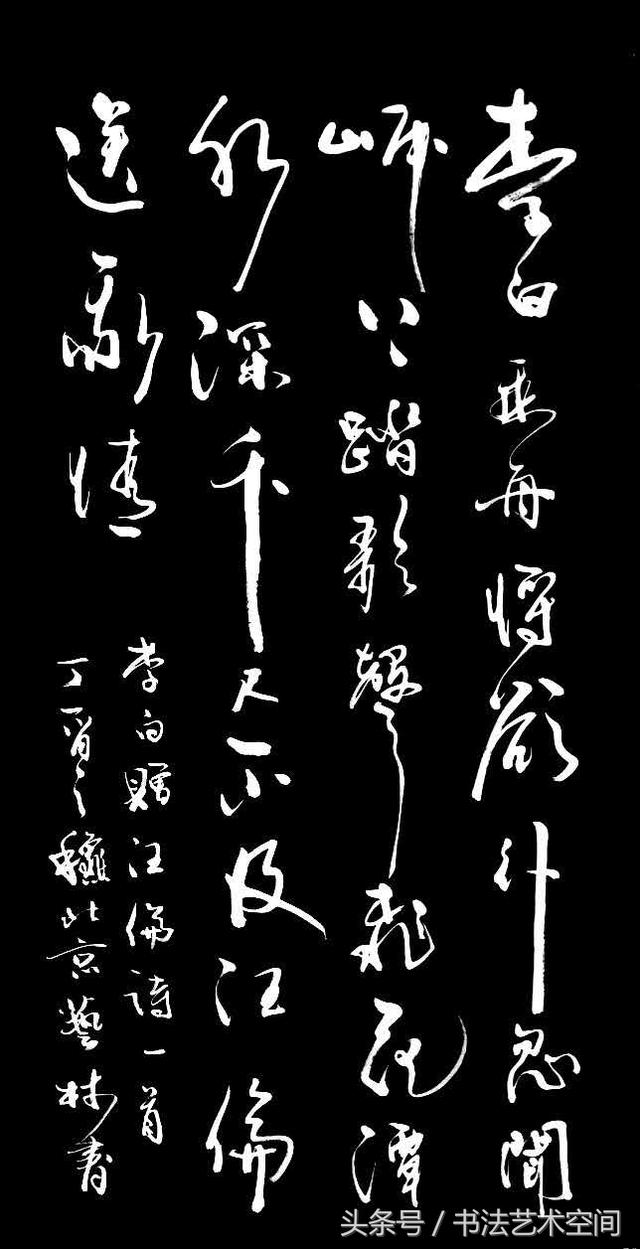 李白乘舟將欲行忽聞
岸上踏歌聲桃花潭
水深千尺不及汪倫
送我情
李白贈汪倫詩一首
丁酉之龝北京藝林書
头条号 / 书法艺术空间